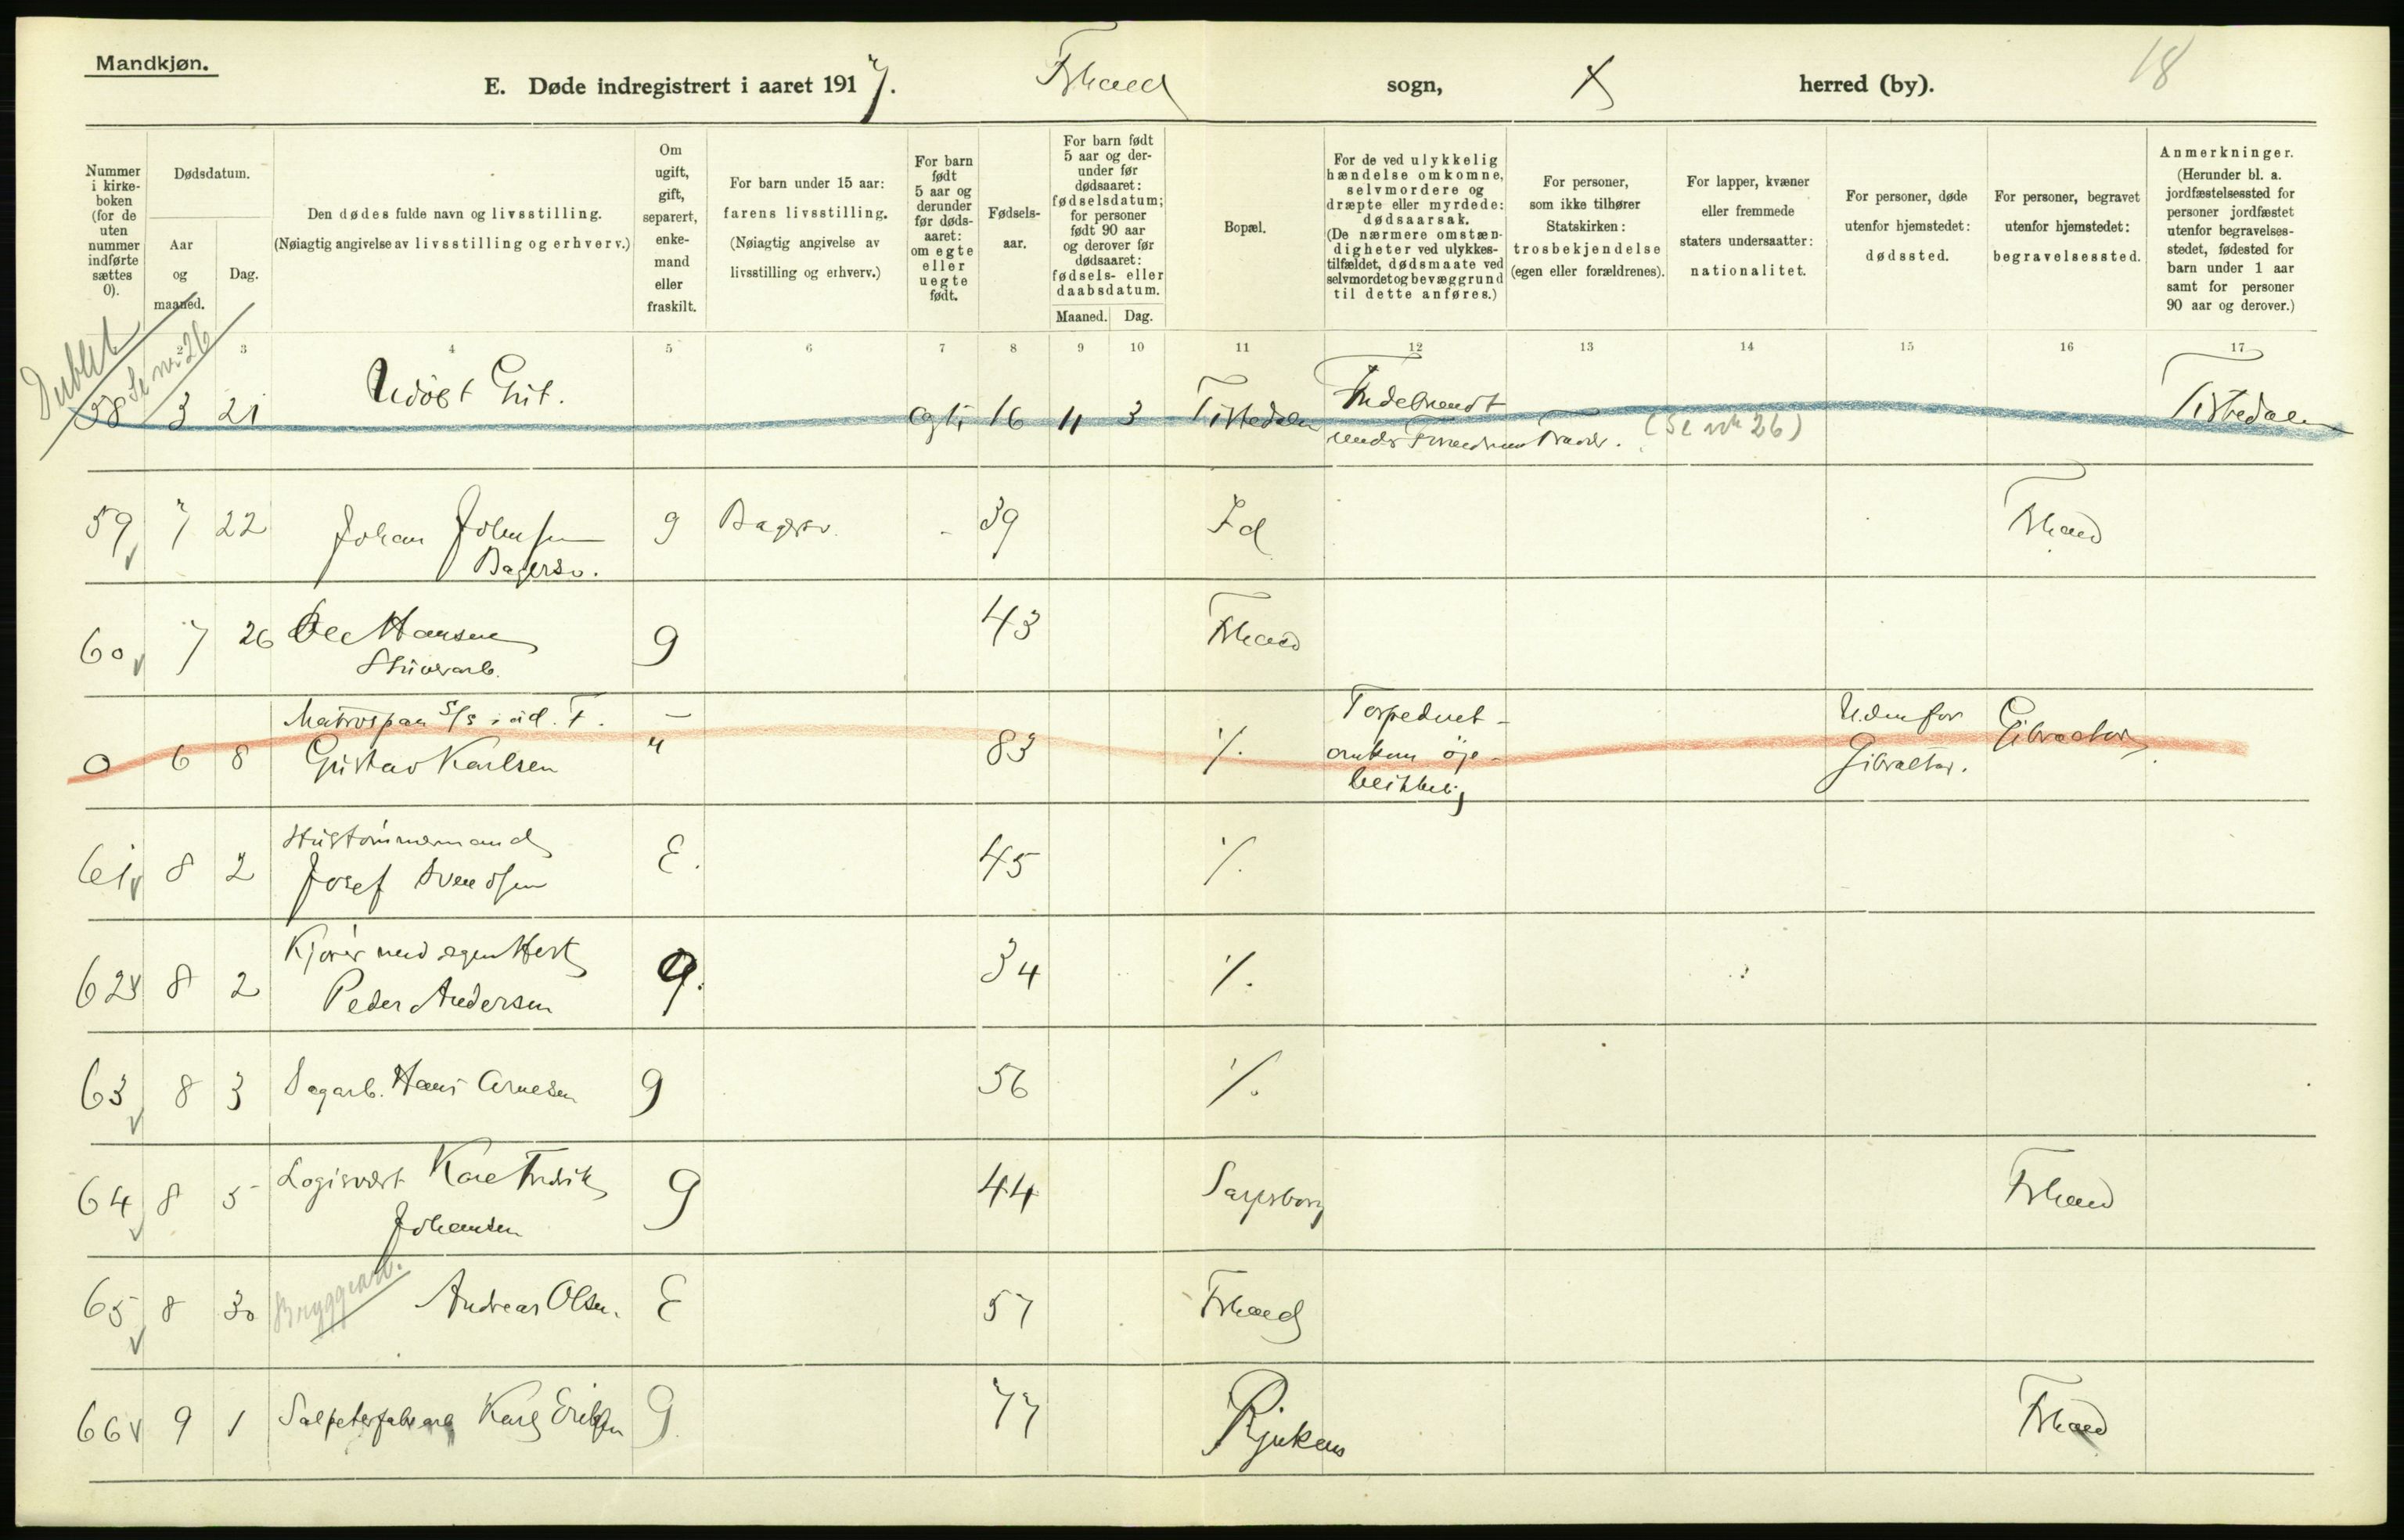 Mandkjøn.
E. Døde indregistrert i aaret 1917. Frhald sogn, herred (by).
18
Nummer i kirkeboken (for de uten nummer indførte sættes 0).
Dødsdatum.
Aar og maaned.
Dag.
Den dødes fulde navn og livsstilling.
(Nøiagtig angivelse av livsstilling og erhverv.)
Om ugift, gift, separert, enkemand eller fraskilt.
For barn under 15 aar: farens livsstilling.
(Nøiagtig angivelse av livsstilling og erhverv.)
For barn født 5 aar og derunder før dødsaaret: om egte eller uegte født.
Fødselsaar.
For barn født 5 aar og derunder før dødsaaret: fødselsdatum; for personer født 90 aar og derover før dødsaaret: fødsels- eller daabsdatum.
Maaned.
Dag.
Bopæl.
For de ved ulykkelig hændelse omkomne, selvmordere og dræpte eller myrdede: dødsaarsak.
(De nærmere omstændigheter ved ulykkestilfældet, dødsmaate ved selvmordet og bevæggrund til dette anføres.)
For personer, som ikke tilhører Statskirken: trosbekjendelse (egen eller forældrenes).
For lapper, kvæner eller fremmede staters undersaatter: nationalitet.
For personer, døde utenfor hjemstedet: dødssted.
For personer, begravet utenfor hjemstedet: begravelsessted.
Anmerkninger.
(Herunder bl. a. jordfæstelsessted for personer jordfæstet utenfor begravelsesstedet, fødested for barn under 1 aar samt for personer 90 aar og derover.)
2 3 4 5 6 7 8 9 10 11 12 13 14 15 16 17
Dublet
Se nr 26
58 3 21 Udøbt Gut. 16 11 3 Tistedalen Indebrændt Tistedalen
under (Se nr 26)
59 7 22 Johan Johnsen g Bagersv. - 39 Id Frhald
Bagersv.
60 7 26 Ole Hansen g 43 Frhald
0 6 8 Gustav Karlsen " 83 ./. Torpedert - omkom øjeblikkelig Udenfor Gibraltar. Gibraltar
61 8 2 Hustømmermand E. 45 ./.
Josef Svendsen
62 8 2 Kjører med egen Hest g. 34 ./.
Peder Andersen
63 8 3 Sagarb. Hans Arnesen g 56 ./.
64 8 5 Logisvært Karl Fredrik g 44 Sarpsborg Frhald
Johansen
65 8 30 Bryggearb. Andreas Olsen. E 57 Frhald
66 9 1 Salpeterfabrarb Karl Eriksen g. 77 Rjukan Frhald